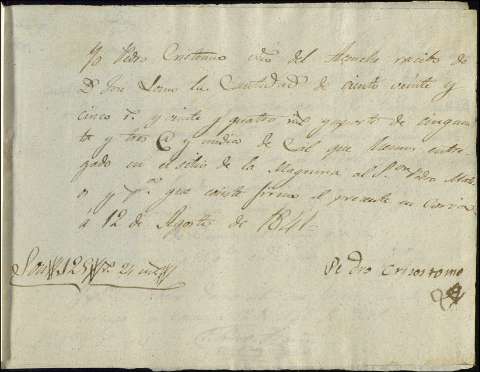 Yo Pedro Crisostomo vno del Aquel recibo de
Dn Jose Lomo la Cantidad de ciento veinte y
cinco rs y veinte y quatro ms ymporte de cinquen
ta y tres C y media de Cal que hemos entre
gado en el sitio de la Maquina al Sor Pedro Mate
o y pa que coste firmo el presente en Coria
á 12 de Agosto de 1841
Son 125 rs 24 ms
Pedro Crisostomo